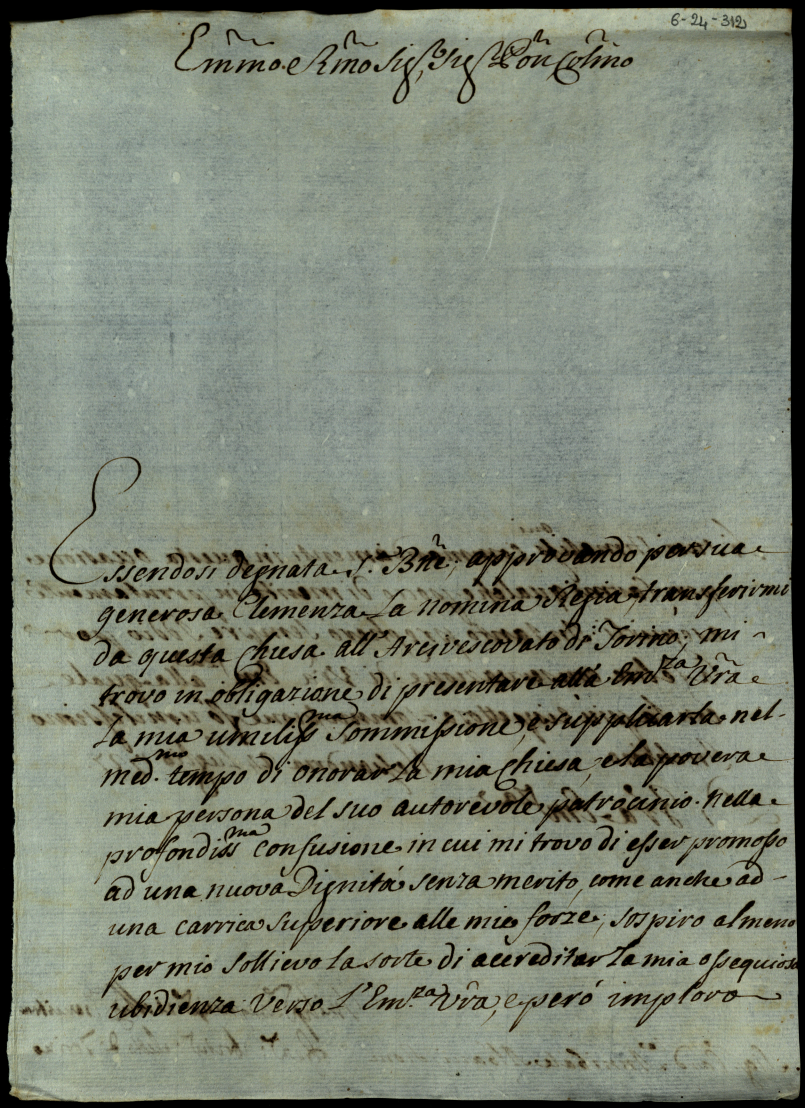 6-24-312
Em̃mo. e Rm̃o Sig.r, Sig.r Pron Col̃mo
Essendosi degnata S. Bñe, approvando per sua
generosa Clemenza la nomina Regia, transferirmi
da questa Chiesa all'Arcivescovato di Torino, mi
trovo in obligazione di presentare all'a Em.za Vr̃a
la mia umiliss.ma Sommissione, e supplicarla nel
med.mo tempo di onorar la mia Chiesa, e la povera
mia persona del suo autorevole patrocinio. nella
profondiss.ma confusione in cui mi trovo di esser promosso
ad una nuova Dignitá senza merito, come anche ad
una carrica Superiore alle mie forze, sospiro almeno
per mio Sollievo la sorte di accreditar la mia ossequiosa
ubidienza verso l'Em.za Vr̃a, e peró imploro